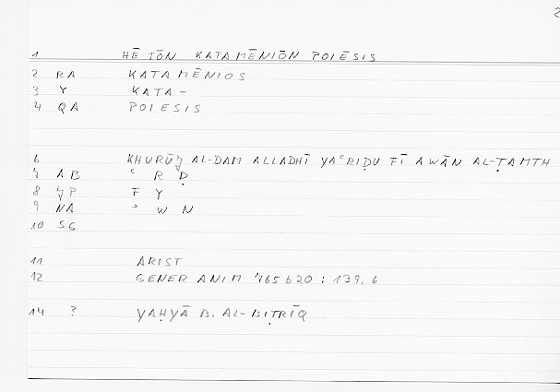 2
1 HĒ TŌN KATAMĒNIŌN POIĒSIS
2 RA KATAMĒNIOS
3 Y KATA-
4 QA POIESIS
6 KHURŪǧ AL-DAM ALLADHĪ YAʿRIḌU FĪ AWĀN AL-ṬAMTH
7 AB ʿ R Ḍ
8 ǧP F Y
9 NA ʾ W N
10 SG
11 ARIST
12 GENER ANIM 765b20 : 139.6
14 ? YAḤYĀ B. AL-BIṬRĪQ